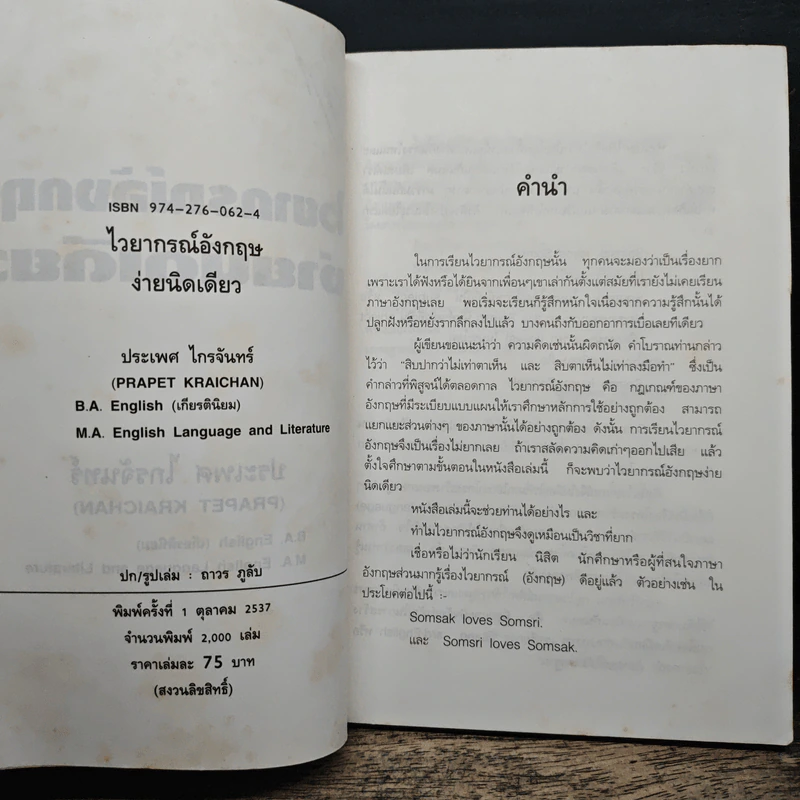 ISBN 974-276-062-4
ไวยากรณ์อังกฤษ
ง่ายนิดเดียว
ประเพศ ไกรจันทร์
(PRAPET KRAICHAN)
B.A. English (เกียรตินิยม)
M.A. English Language and Literature
ปก/รูปเล่ม : ถาวร ภูลับ
พิมพ์ครั้งที่ 1 ตุลาคม 2537
จำนวนพิมพ์ 2,000 เล่ม
ราคาเล่มละ 75 บาท
(สงวนลิขสิทธิ์)
คำนำ
ในการเรียนไวยากรณ์อังกฤษนั้น ทุกคนจะมองว่าเป็นเรื่องยาก
เพราะเราได้ฟังหรือได้ยินจากเพื่อนๆเขาเล่ากันตั้งแต่สมัยที่เรายังไม่เคยเรียน
ภาษาอังกฤษเลย พอเริ่มจะเรียนก็รู้สึกหนักใจเนื่องจากความรู้สึกนั้นได้
ปลูกฝังหรือหยั่งรากลึกลงไปแล้ว บางคนถึงกับออกอาการเบื่อเลยทีเดียว
ผู้เขียนขอแนะนำว่า ความคิดเช่นนั้นผิดถนัด คำโบราณท่านกล่าว
ไว้ว่า "สิบปากว่าไม่เท่าตาเห็น และ สิบตาเห็นไม่เท่าลงมือทำ" ซึ่งเป็น
คำกล่าวที่พิสูจน์ได้ตลอดกาล ไวยากรณ์อังกฤษ คือ กฎเกณฑ์ของภาษา
อังกฤษที่มีระเบียบแบบแผนให้เราศึกษาหลักการใช้อย่างถูกต้อง สามารถ
แยกแยะส่วนต่างๆ ของภาษานั้นได้อย่างถูกต้อง ดังนั้น การเรียนไวยากรณ์
อังกฤษจึงเป็นเรื่องไม่ยากเลย ถ้าเราสลัดความคิดเก่าๆออกไปเสีย แล้ว
ตั้งใจศึกษาตามขั้นตอนในหนังสือเล่มนี้ ก็จะพบว่าไวยากรณ์อังกฤษง่าย
นิดเดียว
หนังสือเล่มนี้จะช่วยท่านได้อย่างไร และ
ทำไมไวยากรณ์อังกฤษจึงดูเหมือนเป็นวิชาที่ยาก
เชื่อหรือไม่ว่านักเรียน นิสิต นักศึกษาหรือผู้ที่สนใจภาษา
อังกฤษส่วนมากรู้เรื่องไวยากรณ์ (อังกฤษ) ดีอยู่แล้ว ตัวอย่างเช่น ใน
ประโยคต่อไปนี้ :-
Somsak loves Somsri.
และ Somsri loves Somsak.